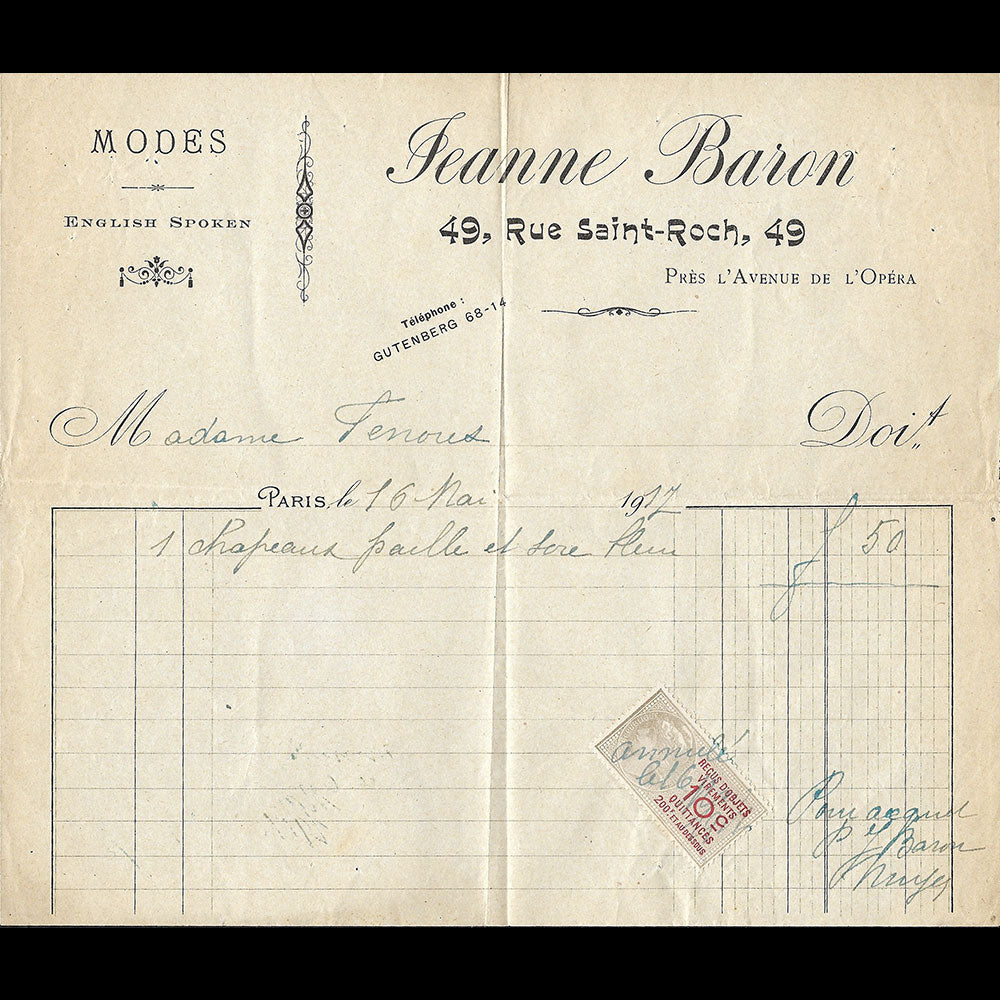 MODES
ENGLISH SPOKEN
Jeanne Baron
49, Rue Saint-Roch, 49
PRÈS L'AVENUE DE L'OPÉRA
Téléphone :
GUTENBERG 68-14
Madame Doit
PARIS, le 16 Mai 1917
1 Chapeaux paille et soie f 50
annulé
le 16
REÇUS D'OBJETS
VIREMENTS
10c
QUITTANCES
200f ET AU DESSOUS
Pour acquit
P J Baron